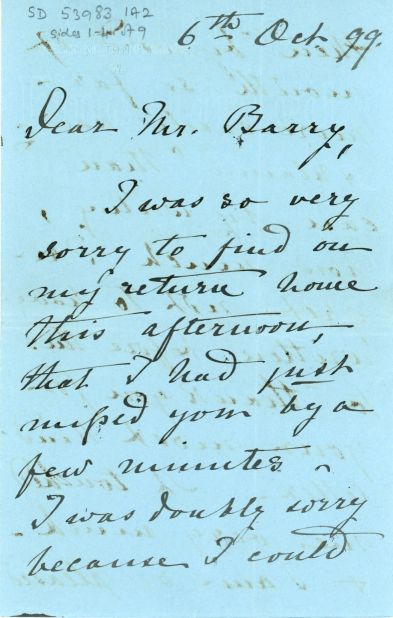 SD 53983 1A2
sides 1-4 of 9
6th Oct. 99.
Dear Mr. Barry,
I was so very
sorry to find on
my return home
this afternoon,
that I had just
missed you by a
few minutes -
I was doubly sorry
because I could